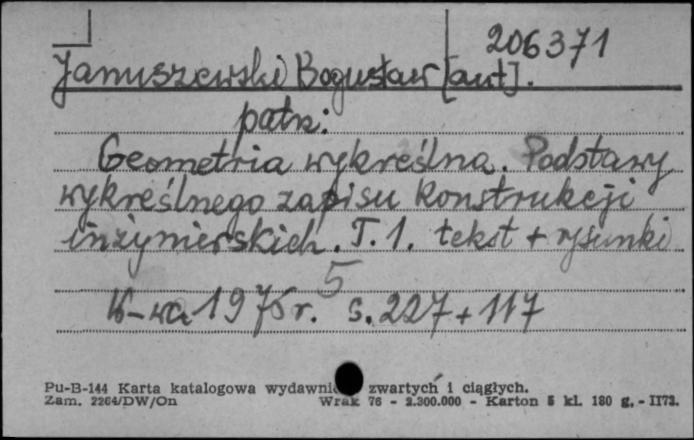 206371
Januszewski Bogusław [aut].
patrz:
Geometria wykreślna. Podstawy
wykreślnego zapisu konstrukcji
inżynierskich. T. 1. tekst + rysunki
W-wa 1975 r. s. 227 + 117
5
Pu-B-144 Karta katalogowa wydawni zwartych i ciągłych.
Zam. 2264/DW/On Wrak 76 - 2.300.000 - Karton 5 kl. 180 g. - II73.